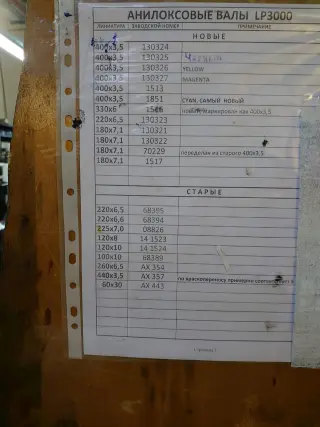 АНИЛОКСОВЫЕ ВАЛЫ LP3000
ЛИНИАТУРА ЗАВОДСКОЙ НОМЕР ПРИМЕЧАНИЕ
НОВЫЕ
400х3,5 130324
400х3,5 130325
400х3,5 130326 YELLOW
400х3,5 130327 MAGENTA
400х3,5 1513
400х3,5 1851 CYAN, САМЫЙ НОВЫЙ
330х6 новый, маркирован как 400х3,5
220х6,5 130323
180х7,1 130321
180х7,1 130322
180х7,1 70229 переделан из старого 400х3,5
180х7,1 1517
СТАРЫЕ
220х6,5 68395
220х6,6 68394
225х7,0 08826
120х8 14 1523
120х10 14 1524
100х10 68389
260х6,5 АХ 354
440х3,5 АХ 357 по краскопереносу
60х30 АХ 443